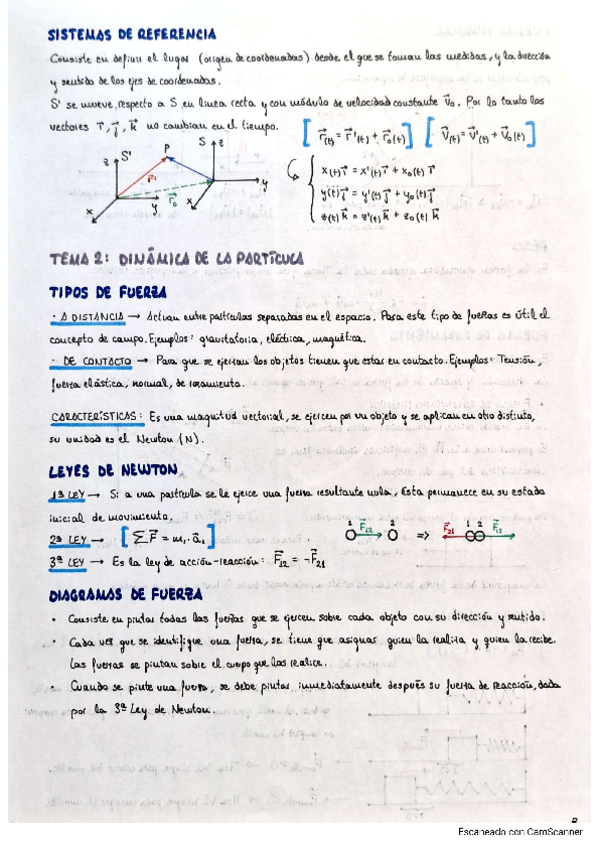 SISTEMAS DE REFERENCIA
Consiste en definir el lugar (origen de coordenadas) desde el que se toman las medidas, y la dirección
y sentido de los ejes de coordenadas.
S' se mueve respecto a S en línea recta y con módulo de velocidad constante v⃗₀. Por lo tanto los
vectores i⃗, j⃗, k⃗ no cambian en el tiempo. [r⃗(t) = r⃗'(t) + r⃗₀(t)] [v⃗(t) = v⃗'(t) + v⃗₀(t)]
x(t) i⃗ = x'(t) i⃗ + x₀(t) i⃗
y(t) j⃗ = y'(t) j⃗ + y₀(t) j⃗
z(t) k⃗ = z'(t) k⃗ + z₀(t) k⃗
z S' P S z
r⃗' r⃗₀ y
x y x
TEMA 2: DINÁMICA DE LA PARTÍCULA
TIPOS DE FUERZA
· A DISTANCIA → Actúan entre partículas separadas en el espacio. Para este tipo de fuerzas es útil el
concepto de campo. Ejemplos: gravitatoria, eléctrica, magnética.
· DE CONTACTO → Para que se ejerzan los objetos tienen que estar en contacto. Ejemplos: Tensión,
fuerza elástica, normal, de rozamiento.
CARACTERÍSTICAS: Es una magnitud vectorial, se ejercen por un objeto y se aplican en otro distinto,
su unidad es el Newton (N).
LEYES DE NEWTON
1ª LEY → Si a una partícula se le ejerce una fuerza resultante nula, ésta permanece en su estado
inicial de movimiento.
2ª LEY → [∑F⃗ = m₁ · a⃗₁] 1 F⃗12 2 => F⃗21 1 2 F⃗12
3ª LEY → Es la ley de acción-reacción: F⃗12 = -F⃗21
DIAGRAMAS DE FUERZA
· Consiste en pintar todas las fuerzas que se ejercen sobre cada objeto con su dirección y sentido.
· Cada vez que se identifique una fuerza, se tiene que asignar quien la realiza y quien la recibe.
Las fuerzas se pintan sobre el cuerpo que las realice.
· Cuando se pinte una fuerza, se debe pintar inmediatamente después su fuerza de reacción, dada
por la 3ª Ley de Newton.
Escaneado con CamScanner